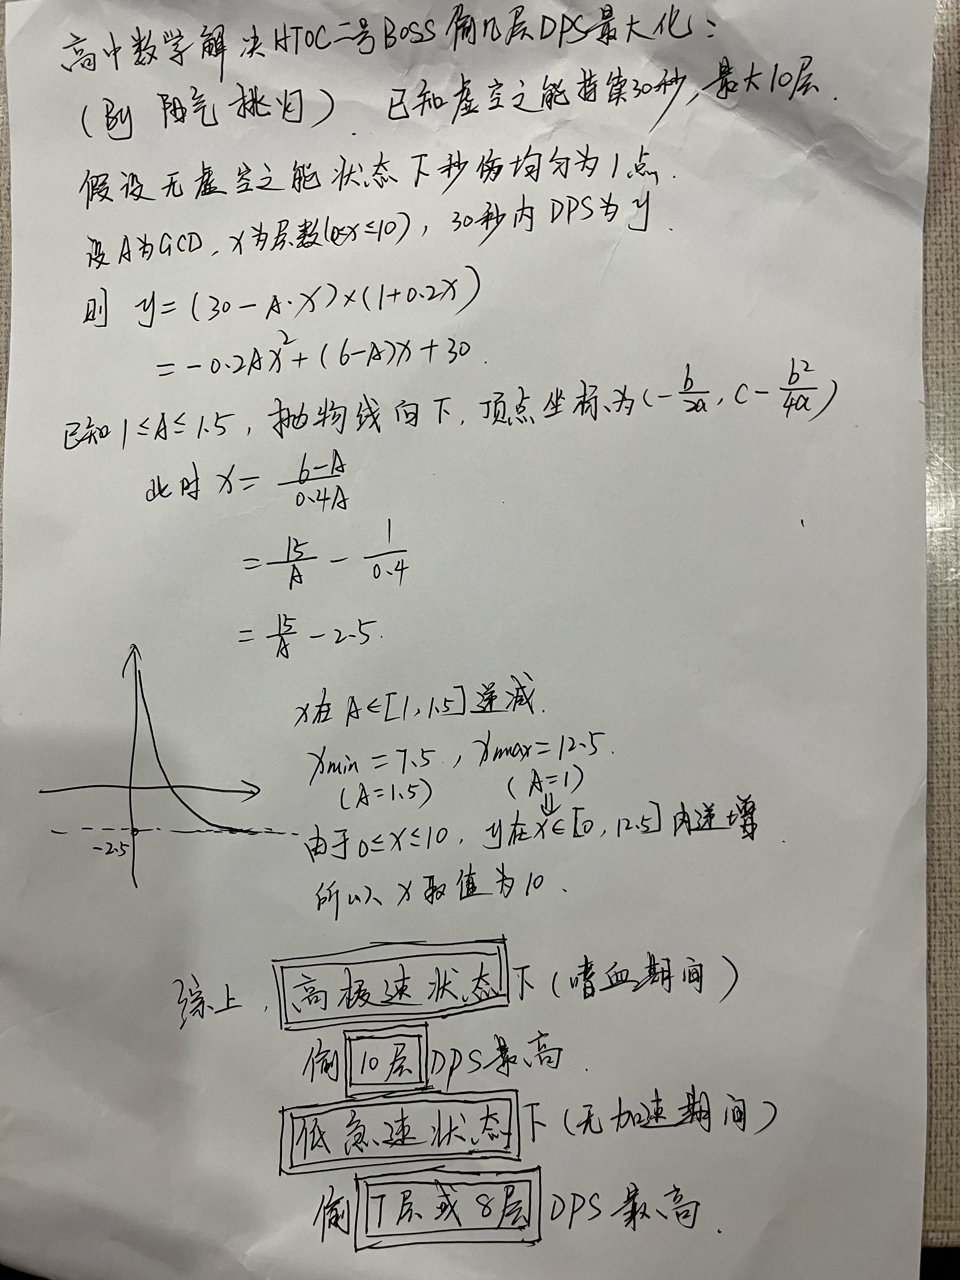 高中数学解决HTOC二号BOSS偷几层DPS最大化：
（By 阳气挑灯）. 已知虚空之能持续30秒，最大10层.
假设无虚空之能状态下秒伤均匀为1点.
设A为GCD，x为层数(0≤x≤10)，30秒内DPS为y
则 y=(30-A·x)×(1+0.2x)
=-0.2Ax²+(6-A)x+30.
已知1≤A≤1.5，抛物线向下，顶点坐标为(-b/2a, c-b²/4a)
此时 x= (6-A)/0.4A
= 15/A - 1/0.4
= 15/A - 2.5.
x在A∈[1,1.5]递减.
xmin=7.5, xmax=12.5.
(A=1.5) (A=1)
⇓
由于0≤x≤10，y在x∈[0,12.5]内递增.
-2.5
所以x取值为10.
综上，高极速状态下（嗜血期间）
偷10层DPS最高
低急速状态下（无加速期间）
偷7层或8层DPS最高.